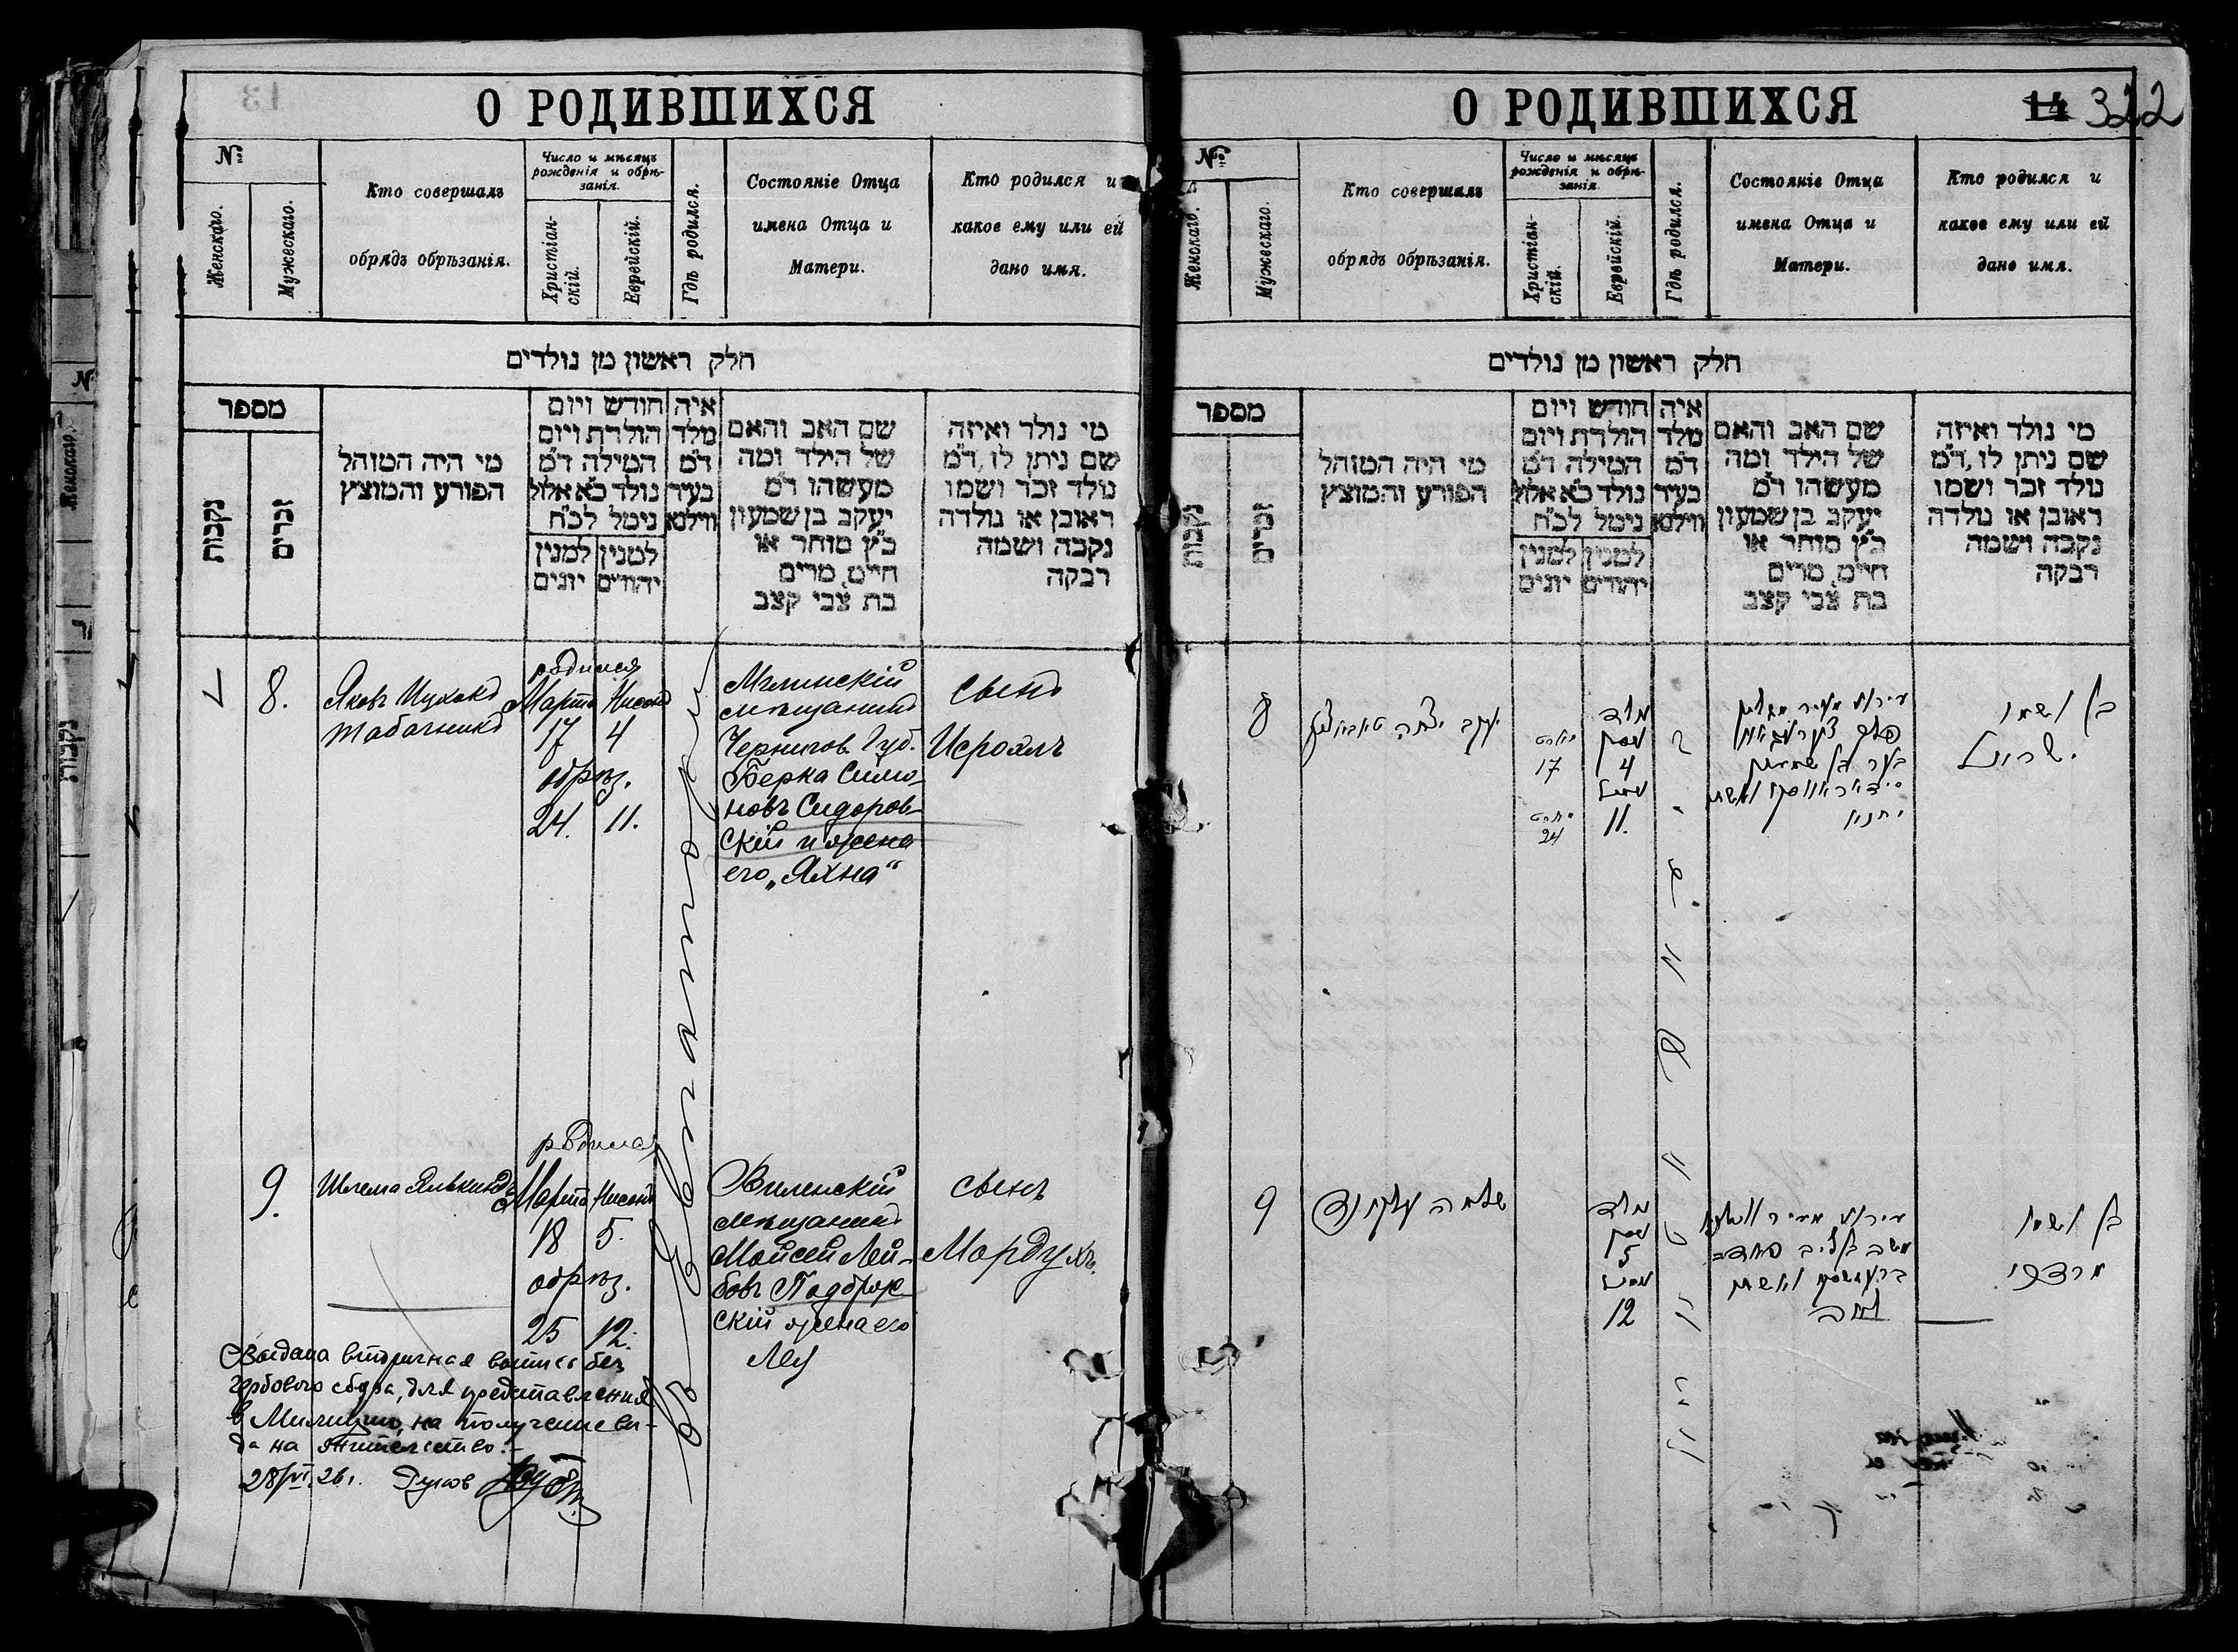 О РОДИВШИХСЯ
№
Женскаго.
Мужескаго.
Кто совершалъ
обрядъ обрѣзанія.
Число и мѣсяцъ
рожденія и обрѣ-
занія.
Христіан-
скій.
Еврейскій.
Гдѣ родился.
Состояніе Отца
имена Отца и
Матери.
Кто родился и
какое ему или ей
дано имя.
חלק ראשון מן נולדים
מספר
נקבות
זכרים
מי היה המוהל
הפורע והמוצץ
חודש ויום
הולדת ויום
המילה ד״מ
נולד כ״א אלול
נימל לכ״ח
למנין
יהודים
למנין
יונים
איה
מלד
ד״מ
בעיר
ווילנא
שם האב והאם
של הילד ומה
מעשהו ד״מ
יעקב בן שמעון
כ״ץ סוחר או
חיים, מרים
בת צבי קצב
מי נולד ואיזה
שם ניתן לו, ד״מ
נולד זכר ושמו
ראובן או נולדה
נקבה ושמה
רבקה
8.
Яковъ Ицхокъ
Табачникъ
родился
Марта Нисонъ
17 4
обрѣз.
24. 11.
Мглинскій
мѣщанинъ
Чернигов. Губ.
Берка Симо-
новъ Сидоров-
скій и жена
его „Яхна“
сынъ
Исроэлъ
9.
Шлема
родился
Марта Нисонъ
18 5.
обрѣз.
25 12.
Виленскій
мѣщанинъ
Мойсей Лей-
бовъ Подбрж-
скій жена его
Лея
сынъ
Мордухъ.
Выдана вторичная выпись без
гербового сбора, для представления
в Милицию, на получение ви-
да на жительство.-
28/VI 26 г.
О РОДИВШИХСЯ
14 322
№
Женскаго.
Мужескаго.
Кто совершалъ
обрядъ обрѣзанія.
Число и мѣсяцъ
рожденія и обрѣ-
занія.
Христіан-
скій.
Еврейскій.
Гдѣ родился.
Состояніе Отца
имена Отца и
Матери.
Кто родился и
какое ему или ей
дано имя.
חלק ראשון מן נולדים
מספר
נקבות
זכרים
מי היה המוהל
הפורע והמוצץ
חודש ויום
הולדת ויום
המילה ד״מ
נולד כ״א אלול
נימל לכ״ח
למנין
יהודים
למנין
יונים
איה
מלד
ד״מ
בעיר
ווילנא
שם האב והאם
של הילד ומה
מעשהו ד״מ
יעקב בן שמעון
כ״ץ סוחר או
חיים, מרים
בת צבי קצב
מי נולד ואיזה
שם ניתן לו, ד״מ
נולד זכר ושמו
ראובן או נולדה
נקבה ושמה
רבקה
8
יעקב יצחק
נולד
ניסן
4
נימול
11.
17
24
בן ושמו
ישראל
9
שלמה
נולד
ניסן
5
נימול
12
בן ושמו
מרדכי